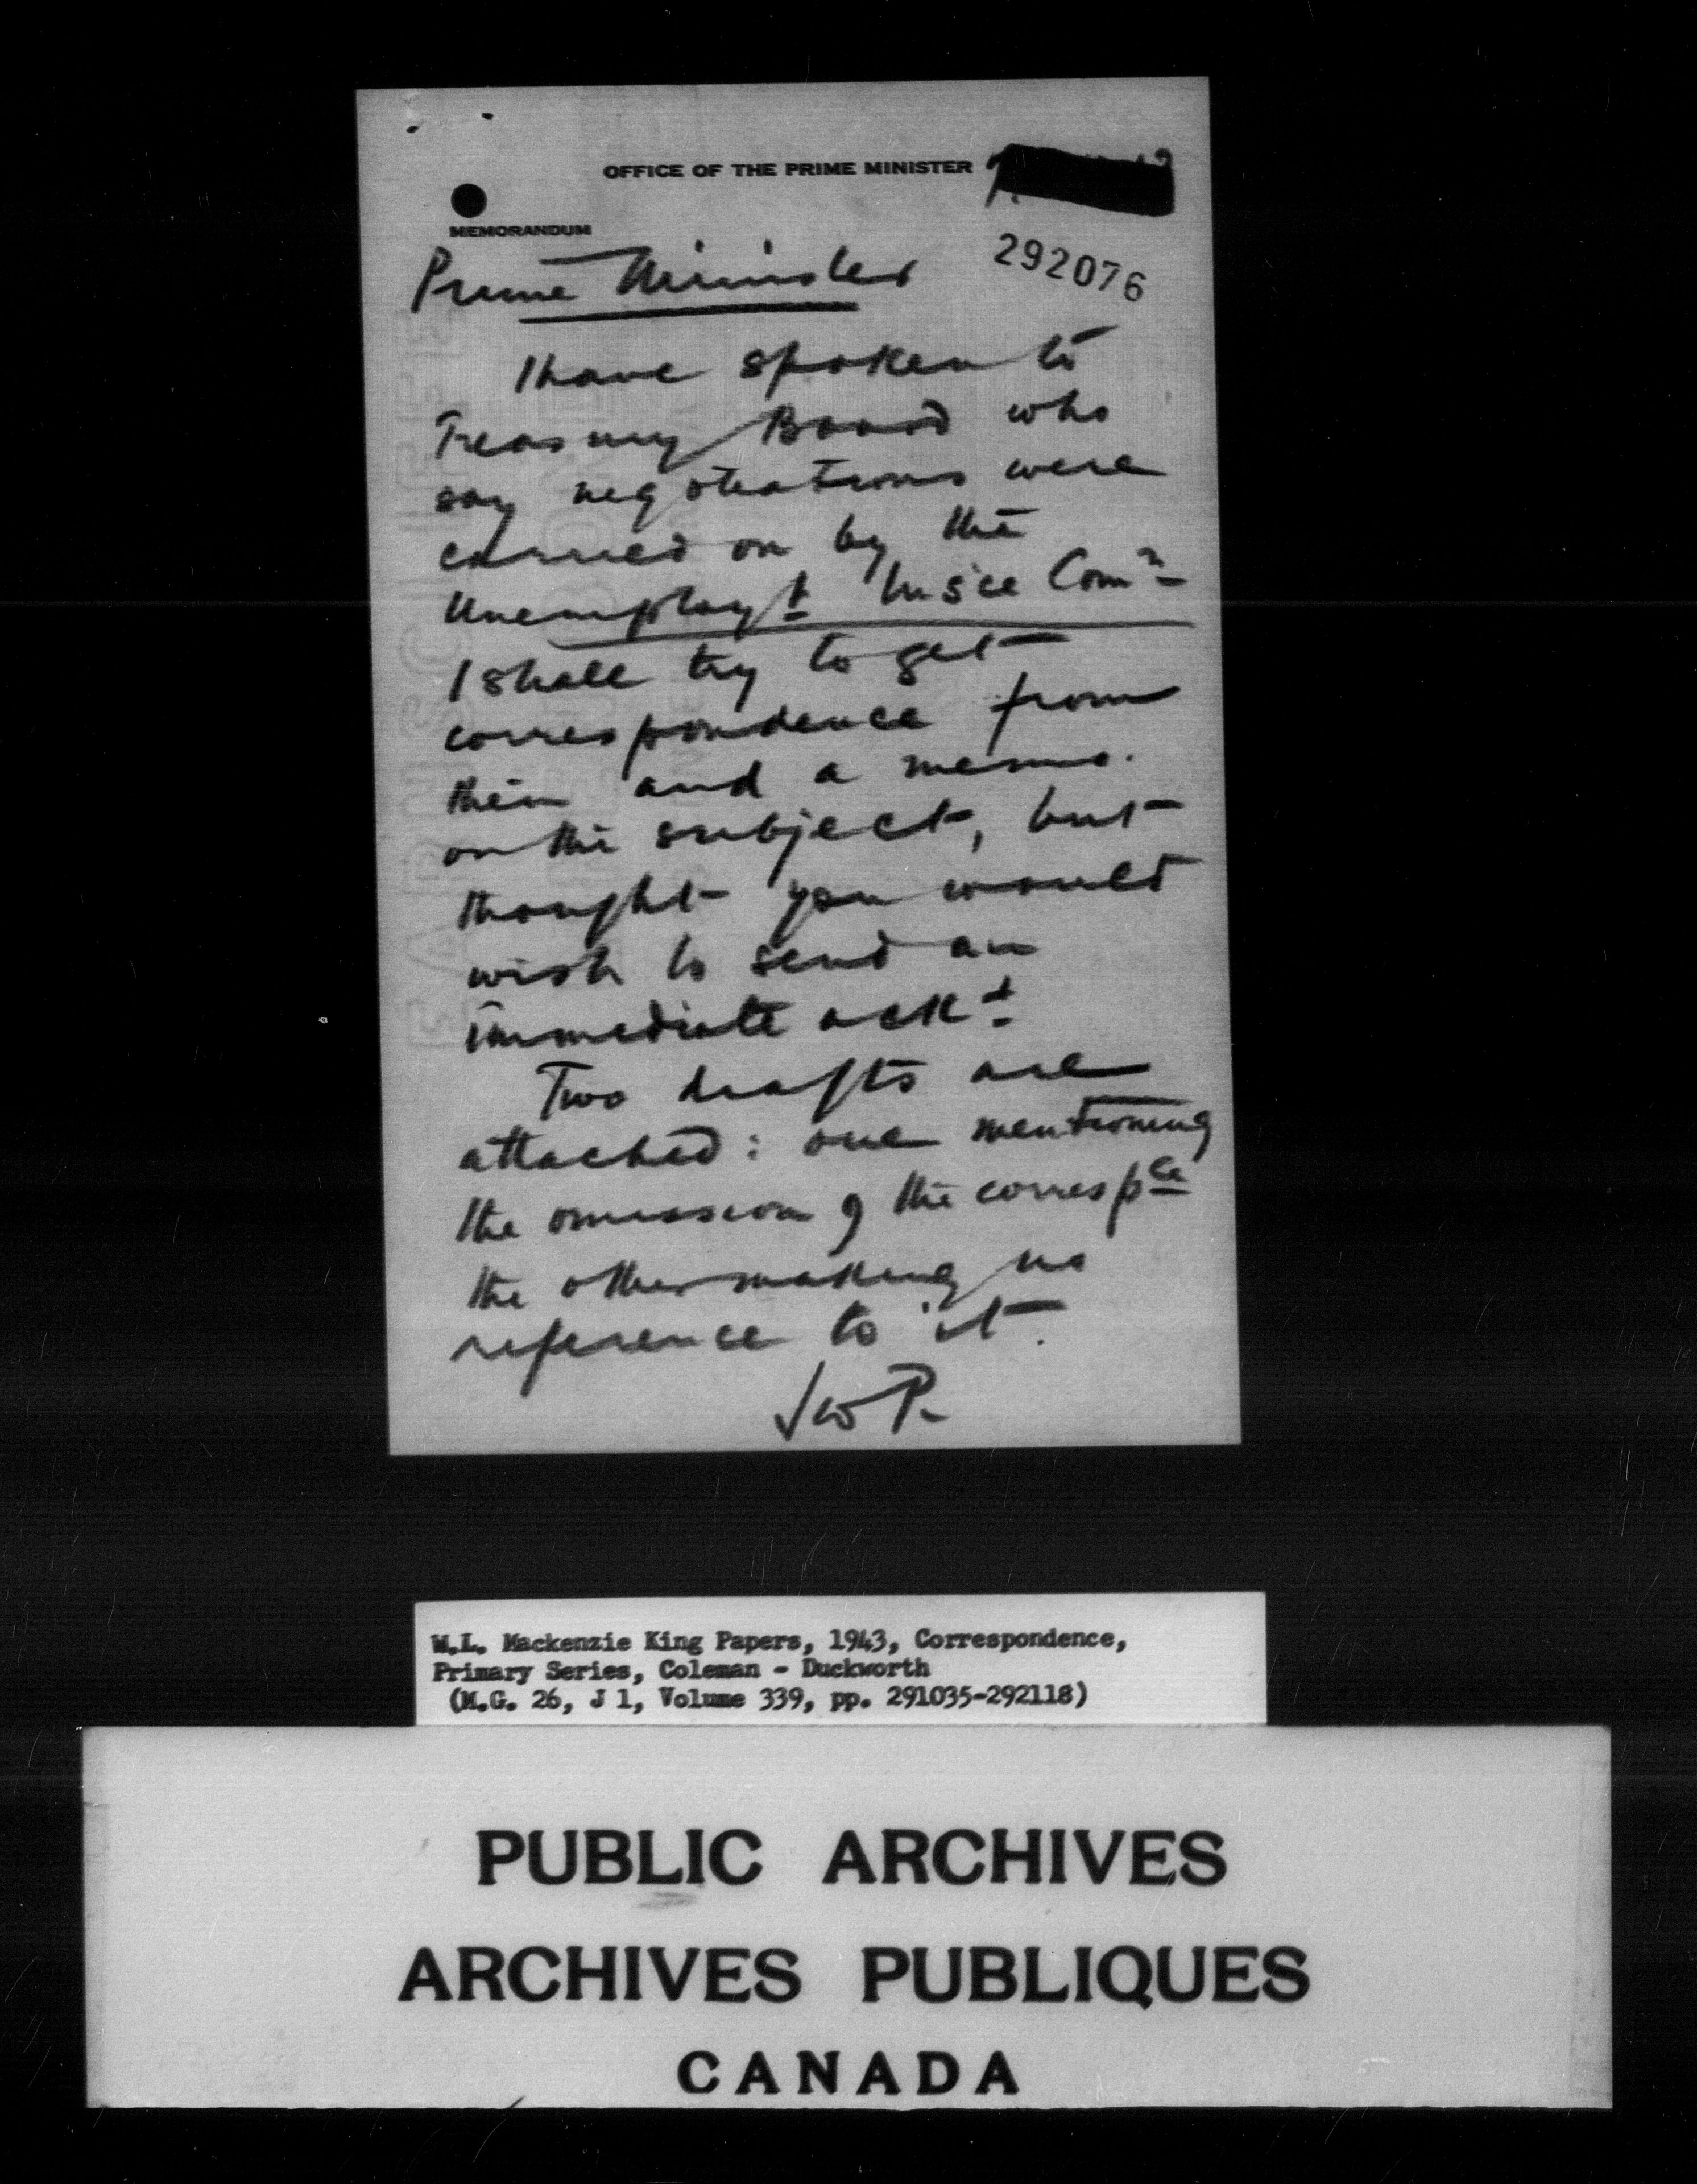 OFFICE OF THE PRIME MINISTER
MEMORANDUM
292076
Prime Minister
I have spoken to
Treasury Board who
say negotiations were
carried on by the
Unemploy^t Insce Com^n
I shall try to get
correspondence from
them and a memo.
on the subject, but
thought you would
wish to send an
immediate ack^t
Two drafts are
attached: one mentioning
the omission of the corresp^ce
the other making no
reference to it.
JWP.
W.L. Mackenzie King Papers, 1943, Correspondence,
Primary Series, Coleman - Duckworth
(M.G. 26, J 1, Volume 339, pp. 291035-292118)
PUBLIC ARCHIVES
ARCHIVES PUBLIQUES
CANADA